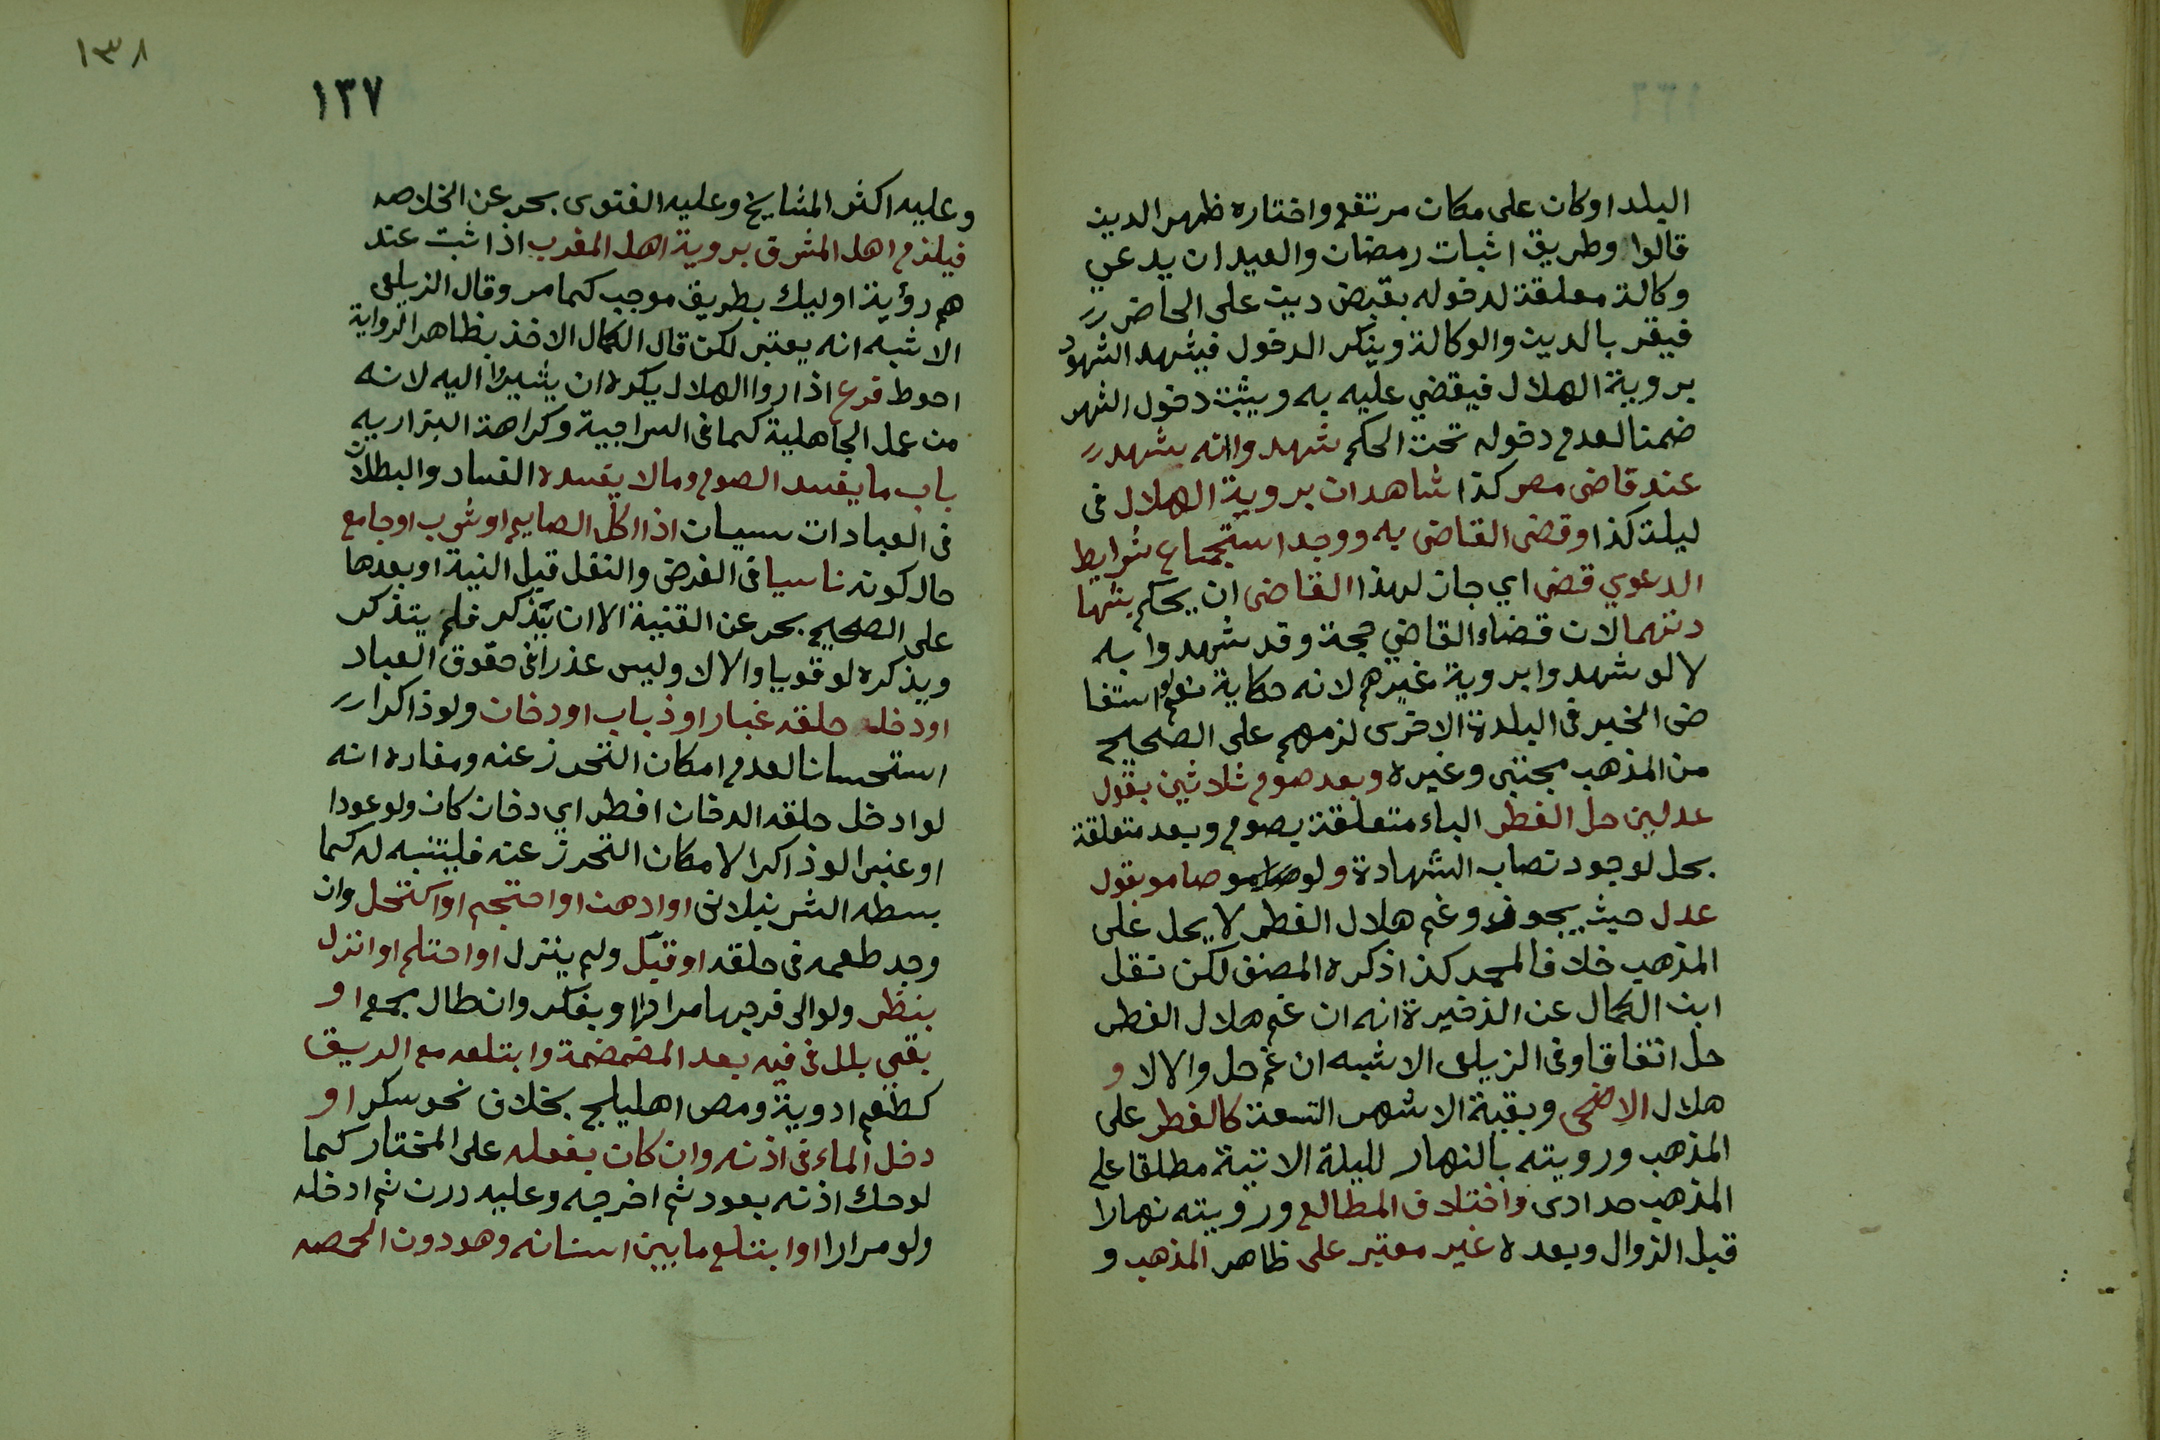 البلد او كان على مكان مرتفع واختاره ظهير الدين
قالوا وطريق اثبات رمضان والعيد ان يدعي
وكالة معلقة لدخوله بقبض دين على الحاضر
فيقر بالدين والوكالة وينكر الدخول فيشهد الشهود
بروية الهلال فيقضي عليه به ويثبت دخول الشهر
ضمنا لعدم دخوله تحت الحكم شهد وانه شهد
عند قاضى مصر كذا شاهدان بروية الهلال فى
ليلة كذا وقضى القاضى به ووجد استجماع شرايط
الدعوي قضى اي جاز لهذا القاضى ان يحكم بشها
دتهما لان قضاء القاضي حجة وقد شهدوا به
لا لو شهدوا بروية غيرهم لانه حكاية نعم لو استفا
ض الخبر فى البلدة الاخرى لزمهم على الصحيح
من المذهب مجتبى وغيره وبعد صوم ثلاثين بقول
عدلين حل الفطر الباء متعلقة بصوم وبعد متعلقة
بحل لوجود نصاب الشهادة ولو صامو بقول
عدل حيث يجوز وغم هلال الفطر لا يحل على
المذهب خلافا لمحمد كذا ذكره المصنف لكن نقل
ابن الكمال عن الذخيرة انه ان غم هلال الفطر
حل اتفاقا وفى الزيلعى الاشبه ان غم حل والا لا و
هلال الاضحى وبقية الاشهر التسعة كالفطر على
المذهب ورويته بالنهار لليلة الاتية مطلقا على
المذهب حدادى واختلاف المطالع ورويته نهارا
قبل الزوال وبعده غير معتبر على ظاهر المذهب و
١٣٨
١٣٧
وعليه اكثر المشايخ وعليه الفتوى بحر عن الخلاصه
فيلزم اهل المشرق بروية اهل المغرب اذا ثبت عند
هم رؤية اوليك بطريق موجب كما مر وقال الزيلعى
الاشبه انه يعتبر لكن قال الكمال الاخذ بظاهر الرواية
احوط فرع اذا روا الهلال يكره ان يشيروا اليه لانه
من عمل الجاهلية كما فى السراجية وكراهة البزازيه
باب ما يفسد الصوم وما لا يفسده الفساد والبطلان
فى العبادات سيان اذا اكل الصايم او شرب او جامع
حال كونه ناسيا فى الفرض والنفل قبل النية او بعدها
على الصحيح بحر عن القنية الا ان يذكر فلم يتذكر
ويذكره لو قويا والا لا وليس عذرا فى حقوق العباد
او دخل حلقه غبار او ذباب او دخان ولو ذاكرا
استحسانا لعدم امكان التحرز عنه ومفاده انه
لو ادخل حلقه الدخان افطر اي دخان كان ولو عودا
او عنبرا لو ذاكرا لامكان التحرز عنه فليتنبه له كما
بسطه الشرنبلانى او ادهن او احتجم او اكتحل وان
وجد طعمه فى حلقه او قبل ولم ينزل او احتلم او انزل
بنظر ولو الى فرجها مرارا او بفكر وان طال بجمع او
بقى بلل فى فيه بعد المضمضة وابتلعه مع الريق
كطعم ادوية ومص اهليلج بخلاف نحو سكر او
دخل الماء فى اذنه وان كان بفعله على المختار كما
لو حك اذنه بعود ثم اخرجه وعليه درن ثم ادخله
ولو مرارا او ابتلع ما بين اسنانه وهو دون الحمصه